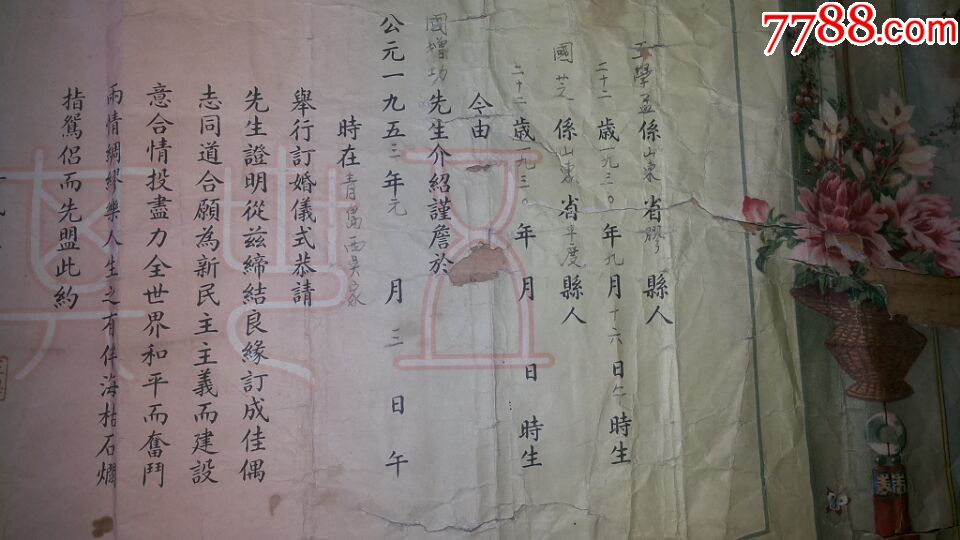 7788.com
王學孟係山東省膠縣人
二十二歲一九三〇年九月十六日午時生
國芝係山東省平度縣人
二十二歲一九三〇年 月 日 時生
今由
國增功先生介紹謹詹於
公元一九五三年元月三日午
時在青島西吳家
舉行訂婚儀式恭請
先生證明從茲締結良緣訂成佳偶
志同道合願為新民主主義而建設
意合情投盡力全世界和平而奮鬥
兩情綢繆樂人生之有伴海枯石爛
指鴛侶而先盟此約